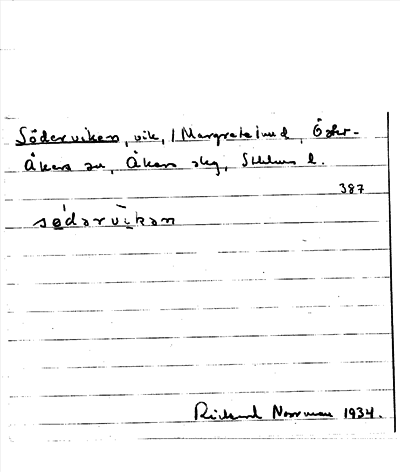 Söderviken, vik, i Margretelund, Öster-
Åkers sn, Åkers skg, Sthlms l.
387
södərvikən
Rickard Norrman 1934.